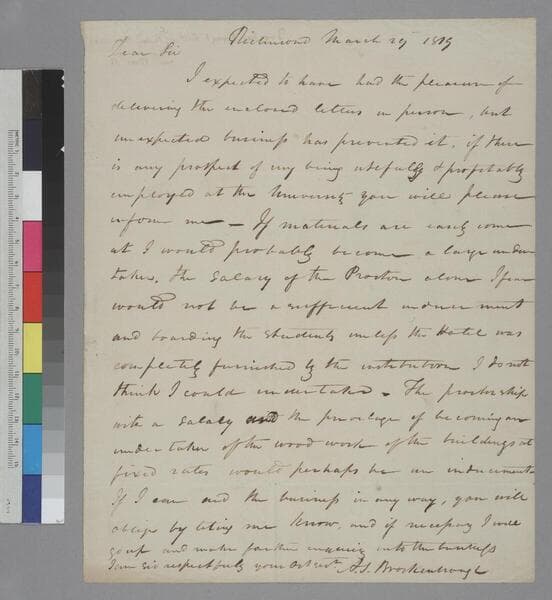 Richmond March 29 1819
Dear Sir
I expected to have had the pleasure of
delivering the enclosed letters in person, but
unexpected business has prevented it, if there
is any prospect of my being usefully & profitably
employed at the University you will please
inform me — If materials are easily come
at I would probably become a large under
taker. The Salary of the Proctor alone I fear
would not be a sufficient inducement
and boarding the students unless the Hotel was
completely furnished by the institution I do not
think I could undertake. The proctorship
with a Salary and the privilege of becoming an
undertaker of the wood work of the buildings at
fixed rates would perhaps be an inducement
If I can aid the business in any way, you will
oblige by leting me know, and if necessary I will
go up and make farther enquiry into the business
I am Sir respectfully your Obt Svt A. S. Brockenbrough